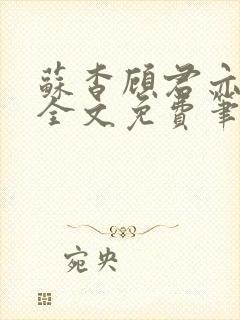 蘇杳顧君亦
全文免費筆
宛央